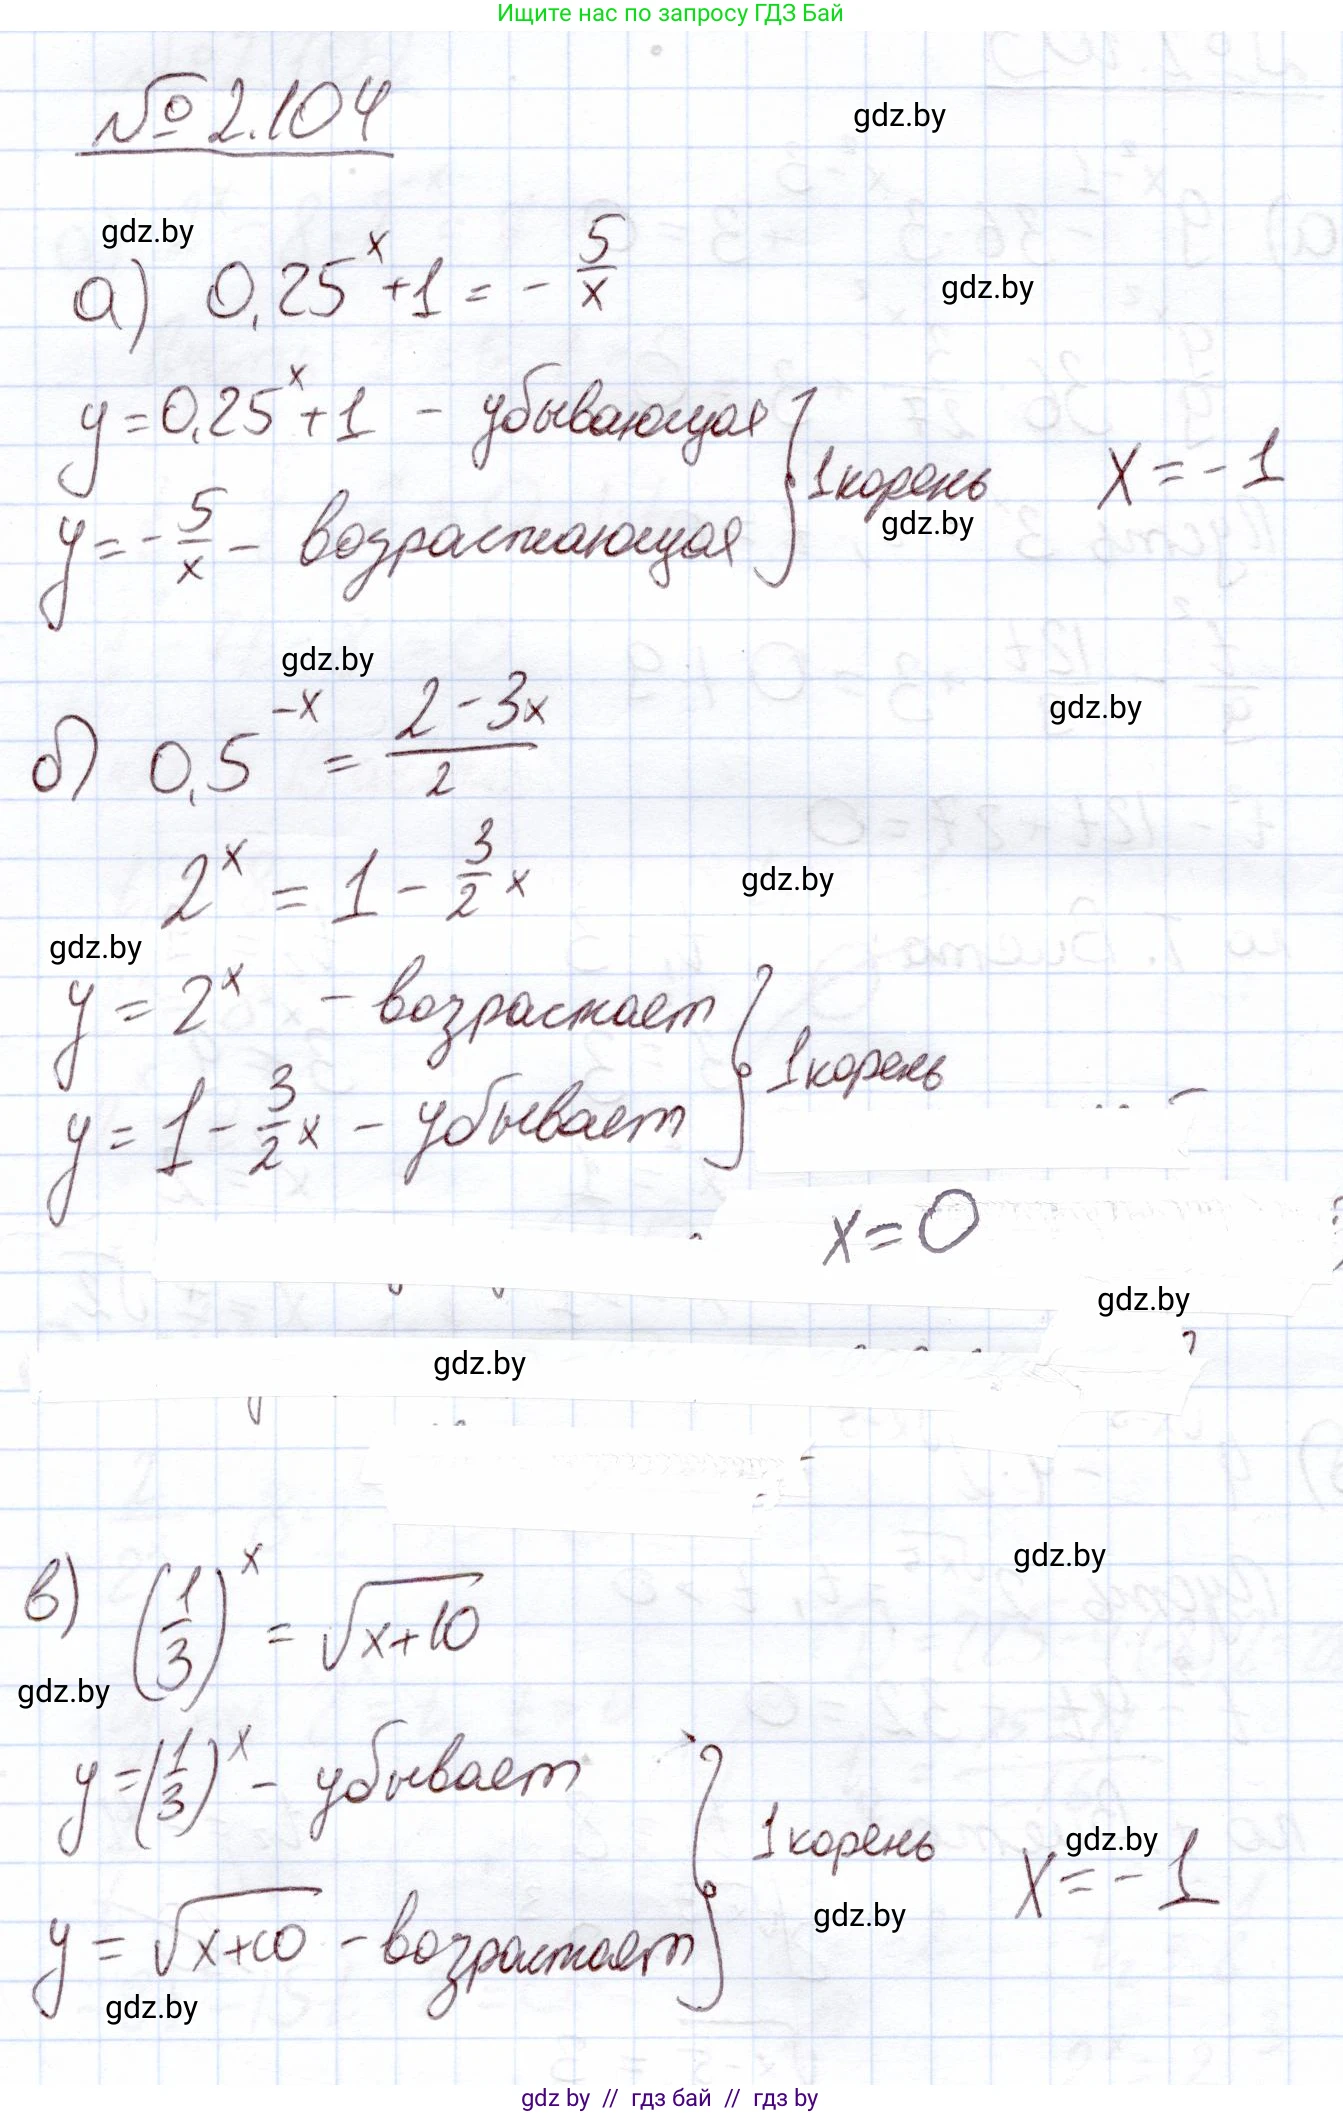 Ищите нас по запросу ГДЗ Бай
№ 2.104
gdz.by
gdz.by
а) 0,25^x + 1 = - 5/x
gdz.by
y = 0,25^x + 1 - убывающая
y = - 5/x - возрастающая
1 корень
x = - 1
gdz.by
gdz.by
б) 0,5^{-x} = (2 - 3x)/2
gdz.by
2^x = 1 - 3/2 x
gdz.by
gdz.by
y = 2^x - возрастает
y = 1 - 3/2 x - убывает
1 корень
x = 0
gdz.by
gdz.by
в) (1/3)^x = √(x+10)
gdz.by
gdz.by
y = (1/3)^x - убывает
y = √(x+10) - возрастает
1 корень
x = - 1
gdz.by
gdz.by
gdz.by
gdz by // гдз бай // гдз by